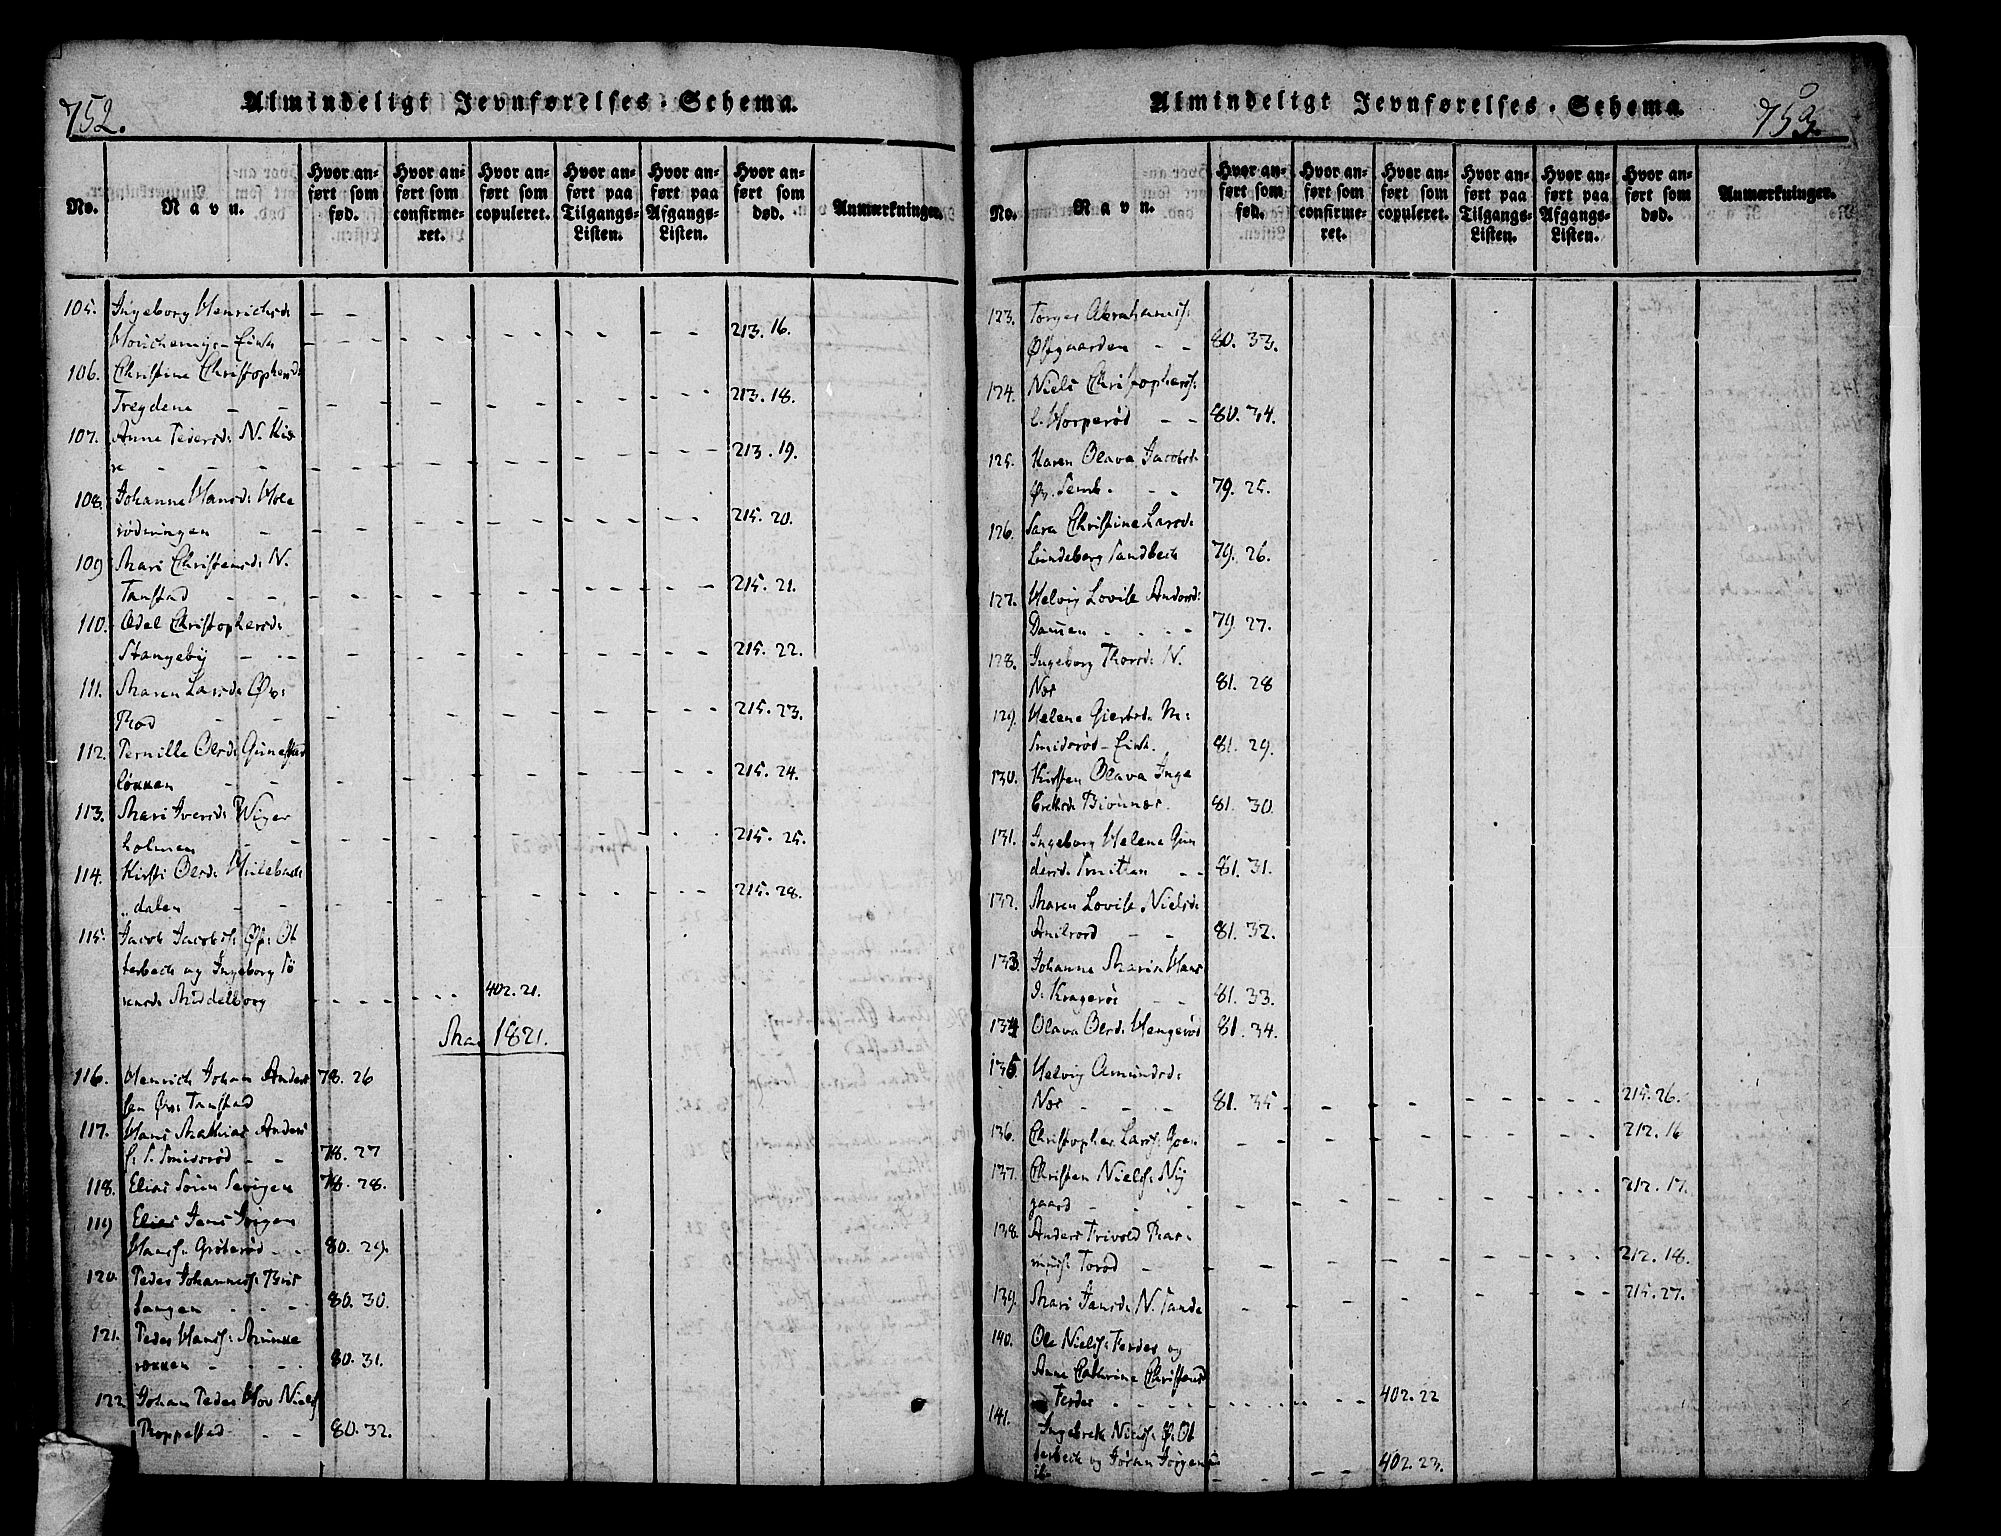 752.
Almindeligt Jevnførelses-Schema.
No.
Navn.
Hvor anført som fød.
Hvor anført som confirmeret.
Hvor anført som copuleret.
Hvor anført paa Tilgangs-Listen.
Hvor anført paa Afgangs-Listen.
Hvor anført som død.
Anmærkninger.
105. Ingeborg Henrichsd:
213. 16.
106. Christine Christophersd:
Treydene 213. 18.
107. Anne Pedersd: N.
213. 19.
108. Johanne Hansd:
rødningen 215. 20.
109 Mari Christensd: N.
Tanstad 215. 21.
110. Adel Christophersd:
Stangeby 215. 22.
111. Maren Larsd: Øv:
Rød 215. 23.
112. Pernille Olsd: Gunestad
løkken 215. 24.
113. Mari Iversd:
holmen 215. 25.
114. Kirsti Olsd:
dalen 215. 28.
115. Jacob Jacobs: Øv: Ot
terbech og Ingeborg Sø
rensd: Middelborg 402. 21.
Mai 1821.
116. Henrich Johan Anders
sen Øv: Tanstad 78. 26
117. Hans Mathias Anders
S. Smidsrød 78. 27
118. Elias Søren Sevigen 78. 28.
119 Elias Jens Jørgen
Hans: Grøterød 80. 29.
120. Peder Johanness:
80. 30.
121. Peder Hans: Munke
røkken 80. 31.
122 Johan Peder Hov Niels
Roppestad 80. 32.
753.
Almindeligt Jevnførelses-Schema.
No.
Navn.
Hvor anført som fød.
Hvor anført som confirmeret.
Hvor anført som copuleret.
Hvor anført paa Tilgangs-Listen.
Hvor anført paa Afgangs-Listen.
Hvor anført som død.
Anmærkninger.
123. Torger Abrahams:
Østgaarden 80. 33.
124. Niels Christophers:
80. 34.
125. Karen Olava Jacobsd:
Øv. Semb. 79. 25.
126. Sara Christine Larsd:
Lindeborg Sandbech 79. 26.
127. Helvig Lovise Andersd:
79 27.
128. Ingeborg Thorsd: N.
Nor 81. 28
129. Helene
Smidsrød 81. 29.
130. Kirsten Olava Inge
81. 30.
131. Ingeborg Helene Gun
dersd: 81. 31.
132. Maren Lovise Nielsd:
81. 32.
133. Johanne Marie Hans
d: Kragerøe 81. 33.
134 Olava Olsd: Hengerød 81. 34.
135. Helvig Amundsd:
Nor 81. 35 215. 26.
136. Christopher Larss: 212. 16
137. Christen Niels: Ny
gaard 212. 17.
138. Anders Trivold Ras
muss: Torød 212. 18.
139. Mari Jansd: N. Sande 215. 27.
140. Ole Niels: Ferder og
Anne Cathrine Christensd:
Ferder 402. 22
141. Ingebrekt Niels: Ø. Ot
terbech og Jøran Jørgens
402. 23.